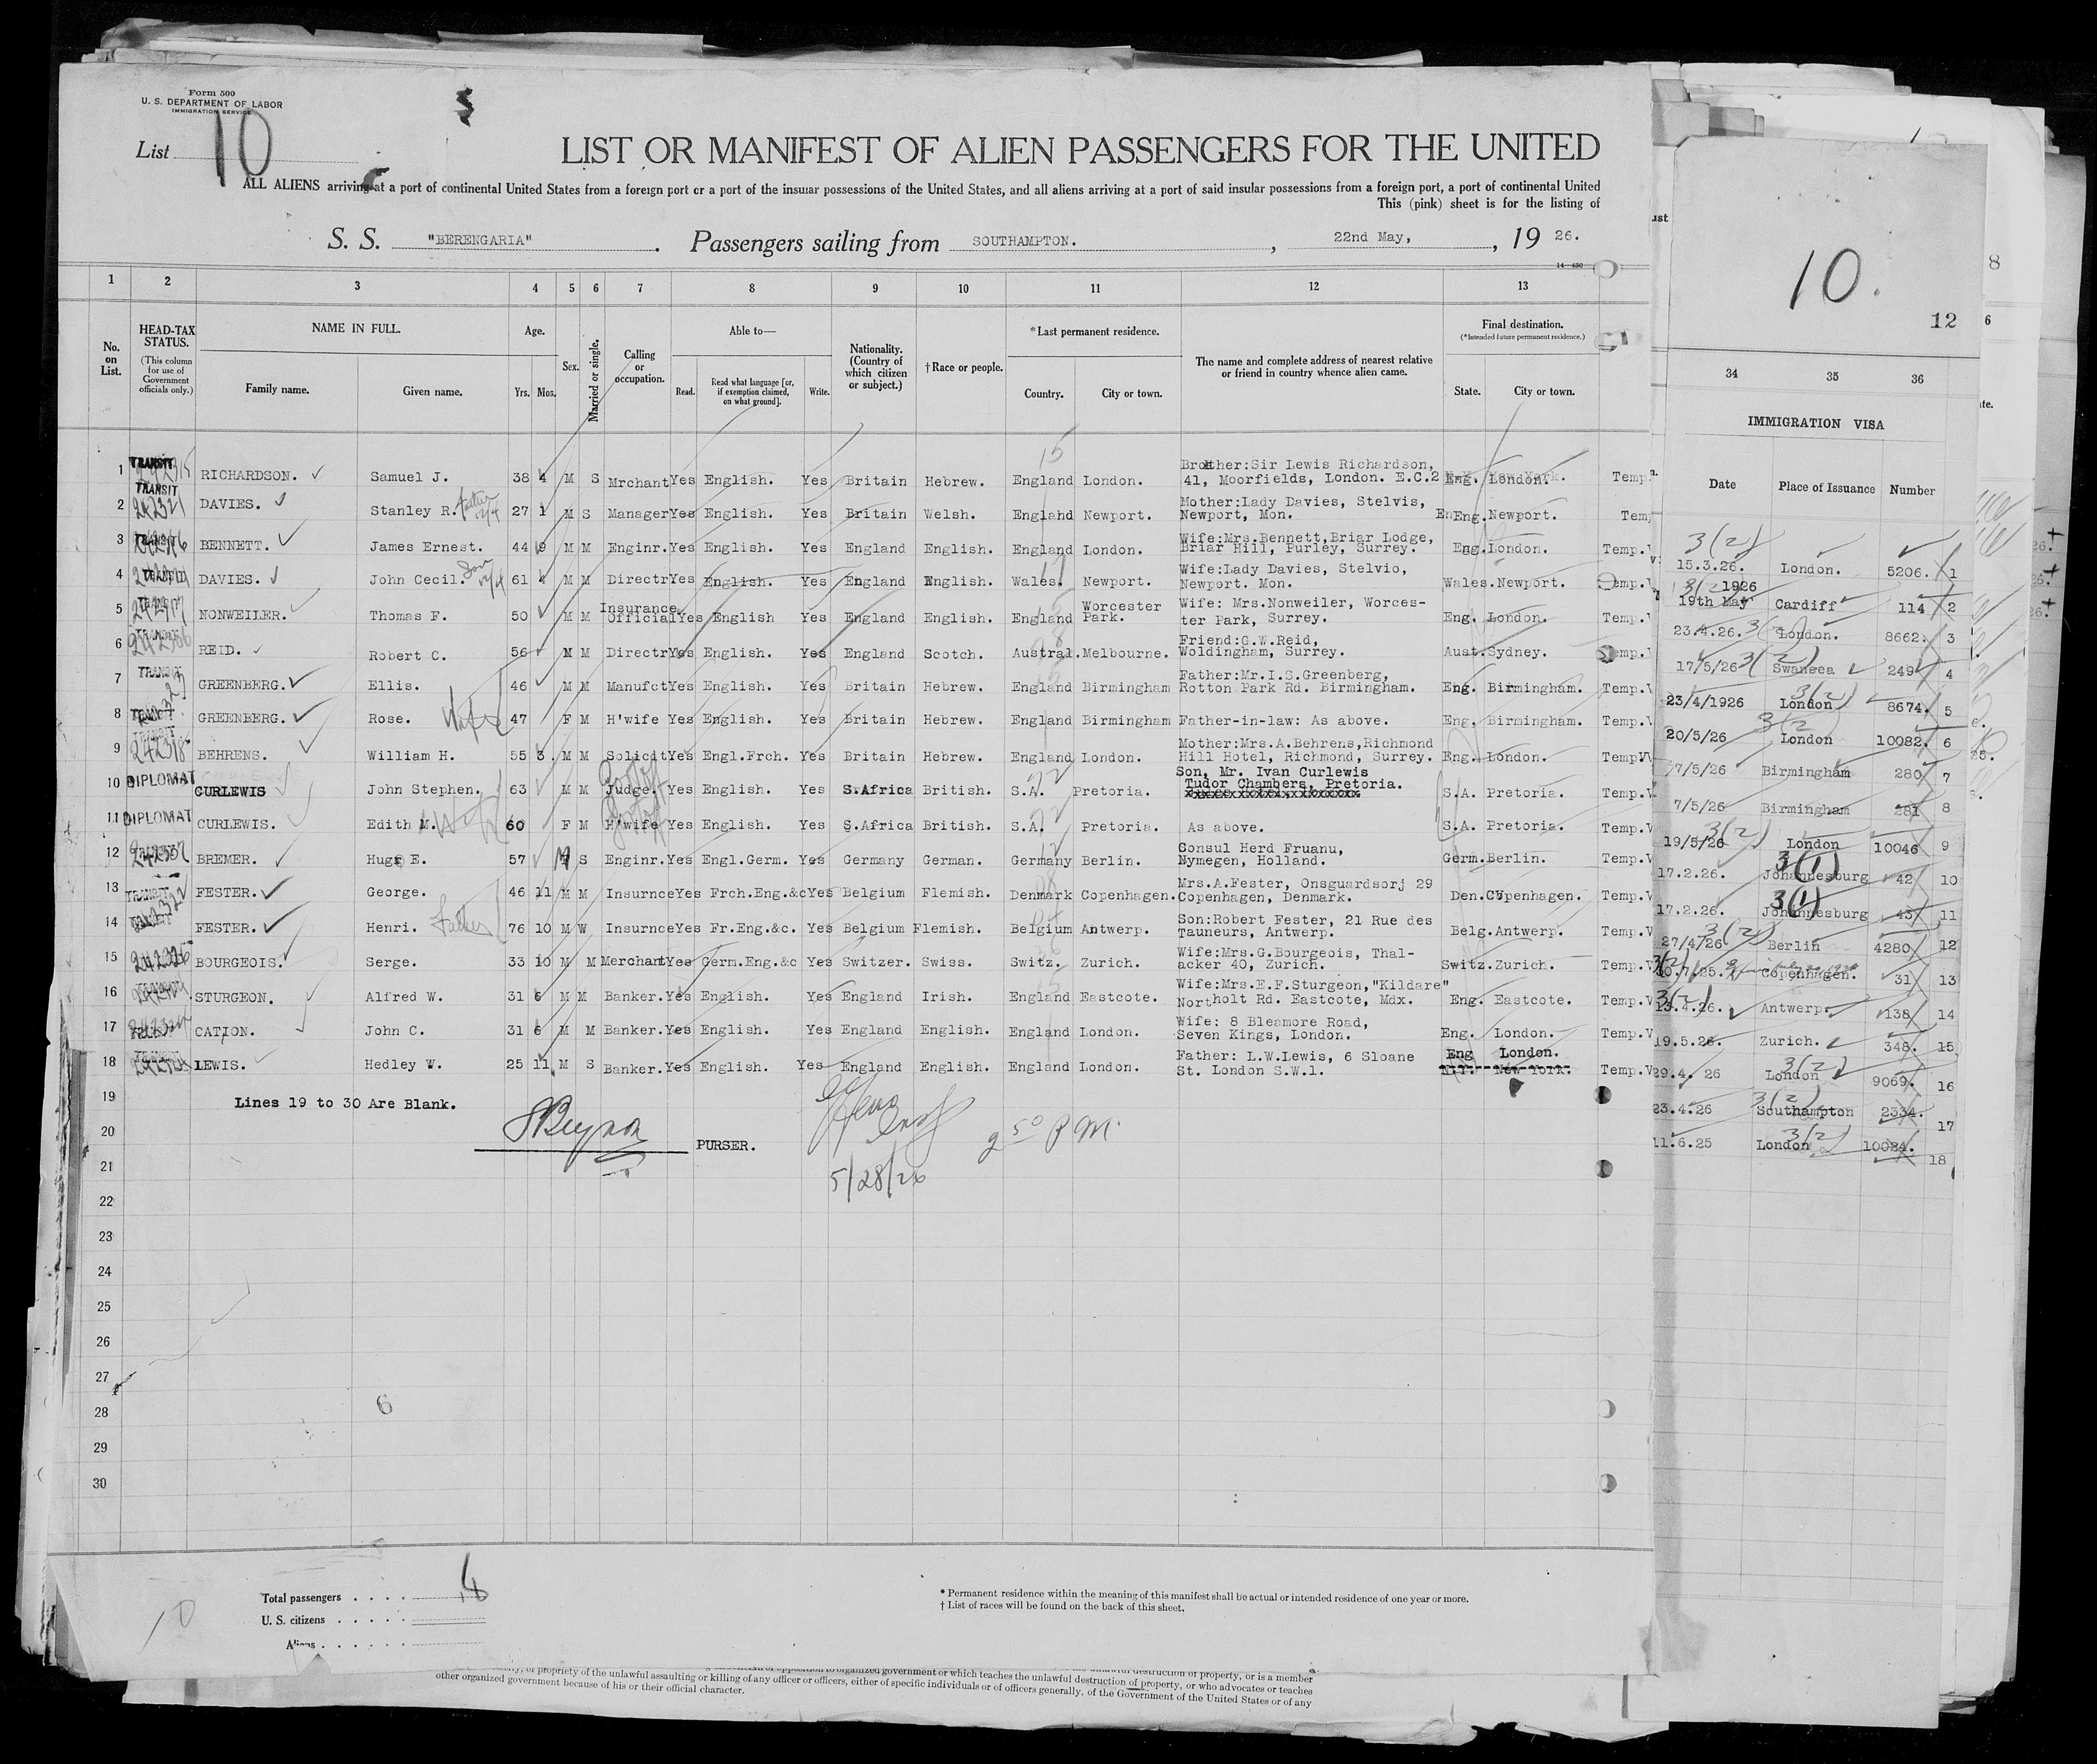 Form 500
U. S. DEPARTMENT OF LABOR
IMMIGRATION SERVICE
List 10
LIST OR MANIFEST OF ALIEN PASSENGERS FOR THE UNITED
ALL ALIENS arriving at a port of continental United States from a foreign port or a port of the insular possessions of the United States, and all aliens arriving at a port of said insular possessions from a foreign port, a port of continental United
This (pink) sheet is for the listing of
S. S. "BERENGARIA" . Passengers sailing from SOUTHAMPTON. , 22nd May, , 19 26.
10.
12
1 2 3 4 5 6 7 8 9 10 11 12 13 34 35 36
No. on List.
HEAD-TAX STATUS.
(This column for use of Government officials only.)
NAME IN FULL.
Family name. Given name.
Age.
Yrs. Mos.
Sex.
Married or single.
Calling or occupation.
Able to—
Read. Read what language [or, if exemption claimed, on what ground]. Write.
Nationality. (Country of which citizen or subject.)
†Race or people.
*Last permanent residence.
Country. City or town.
The name and complete address of nearest relative or friend in country whence alien came.
Final destination.
(*Intended future permanent residence.)
State. City or town.
IMMIGRATION VISA
Date Place of Issuance Number
1 TRANSIT RICHARDSON. Samuel J. 38 4 M S Mrchant Yes English. Yes Britain Hebrew. England London. Brother:Sir Lewis Richardson, 41, Moorfields, London. E.C.2 Eng. London. Temp.
2 TRANSIT DAVIES. Stanley R. father 27 1 M S Manager Yes English. Yes Britain Welsh. England Newport. Mother:Lady Davies, Stelvis, Newport, Mon. Eng. Newport. Tem
3 BENNETT. James Ernest. 44 9 M M Enginr. Yes English. Yes England English. England London. Wife:Mrs.Bennett,Briar Lodge, Briar Hill, Purley, Surrey. Eng. London. Temp.V
4 DAVIES. John Cecil. Son 61 4 M M Directr Yes English. Yes England English. Wales. Newport. Wife:Lady Davies, Stelvio, Newport. Mon. Wales. Newport. Temp.V
5 NONWEILER. Thomas F. 50 M M Insurance Official Yes English Yes England English. England Worcester Park. Wife: Mrs.Nonweiler, Worces-ter Park, Surrey. Eng. London. Temp.V
6 REID. Robert C. 56 M M Directr Yes English. Yes England Scotch. Austral. Melbourne. Friend:G.W.Reid, Woldingham, Surrey. Aust. Sydney. Temp.
7 TRANSIT GREENBERG. Ellis. 46 M M Manufct Yes English. Yes Britain Hebrew. England Birmingham Father:Mr.I.S.Greenberg, Rotton Park Rd. Birmingham. Eng. Birmingham. Temp.V
8 GREENBERG. Rose. Wife 47 F M H'wife Yes English. Yes Britain Hebrew. England Birmingham Father-in-law: As above. Eng. Birmingham. Temp.V
9 BEHRENS. William H. 55 3. M M Solicit Yes Engl.Frch. Yes Britain Hebrew. England London. Mother:Mrs.A.Behrens,Richmond Hill Hotel, Richmond, Surrey. Eng. London. Temp.V
10 DIPLOMAT CURLEWIS John Stephen. 63 M M Judge. Yes English. Yes S.Africa British. S.A. Pretoria. Son, Mr. Ivan Curlewis Tudor Chambers, Pretoria. S.A. Pretoria. Temp.V
11 DIPLOMAT CURLEWIS. Edith M. Wife 60 F M H'wife Yes English. Yes S.Africa British. S.A. Pretoria. As above. S.A. Pretoria. Temp.V
12 BREMER. Hugo E. 57 M S Enginr. Yes Engl.Germ. Yes Germany German. Germany Berlin. Consul Herd Fruanu, Nymegen, Holland. Germ. Berlin. Temp.V
13 TRANSIT FESTER. George. 46 11 M M Insurnce Yes Frch.Eng.&c Yes Belgium Flemish. Denmark Copenhagen. Mrs.A.Fester, Onsguardsorj 29 Copenhagen, Denmark. Den. Copenhagen. Temp.V
14 FESTER. Henri. Father 76 10 M W Insurnce Yes Fr.Eng.&c. Yes Belgium Flemish. Belgium Antwerp. Son:Robert Fester, 21 Rue des Tauneurs, Antwerp. Belg. Antwerp. Temp.V
15 BOURGEOIS. Serge. 33 10 M M Merchant Yes Germ.Eng.&c Yes Switzer. Swiss. Switz. Zurich. Wife:Mrs.G.Bourgeois, Thal-acker 40, Zurich. Switz. Zurich. Temp.V
16 STURGEON. Alfred W. 31 6 M M Banker. Yes English. Yes England Irish. England Eastcote. Wife:Mrs.E.F.Sturgeon,"Kildare" Northolt Rd. Eastcote, Mdx. Eng. Eastcote. Temp.V
17 CATION. John C. 31 6 M M Banker. Yes English. Yes England English. England London. Wife: 8 Bleamore Road, Seven Kings, London. Eng. London. Temp.V
18 LEWIS. Hedley W. 25 11 M S Banker. Yes English. Yes England English. England London. Father: L.W.Lewis, 6 Sloane St. London S.W.1. Eng London. N.Y. New York. Temp.V
15.3.26. London. 5206. 1
19th May 1926 Cardiff 114 2
23.4.26. London. 8662. 3
17/5/26 Swansea 249 4
23/4/1926 London 8674. 5
20/5/26 London 10082. 6
7/5/26 Birmingham 280 7
7/5/26 Birmingham 281 8
19/5/26 London 10046 9
17.2.26. Johannesburg 42 10
17.2.26. Johannesburg 43 11
27/4/26 Berlin 4280 12
Copenhagen. 31 13
13.4.26. Antwerp. 138 14
19.5.26. Zurich. 348. 15
29.4. 26 London 9069. 16
23.4.26 Southampton 2334. 17
11.6.25 London 10084. 18
19 Lines 19 to 30 Are Blank.
20 PURSER. 2 50 P M.
21 5/28/26
22
23
24
25
26
27
28 6
29
30
Total passengers . . . . 
U. S. citizens . . . . .
Aliens . . . . . .
10
* Permanent residence within the meaning of this manifest shall be actual or intended residence of one year or more.
† List of races will be found on the back of this sheet.
or propriety of the unlawful assaulting or killing of any officer or officers, either of specific individuals or of officers generally, of the Government of the United States or of any
other organized government because of his or their official character.